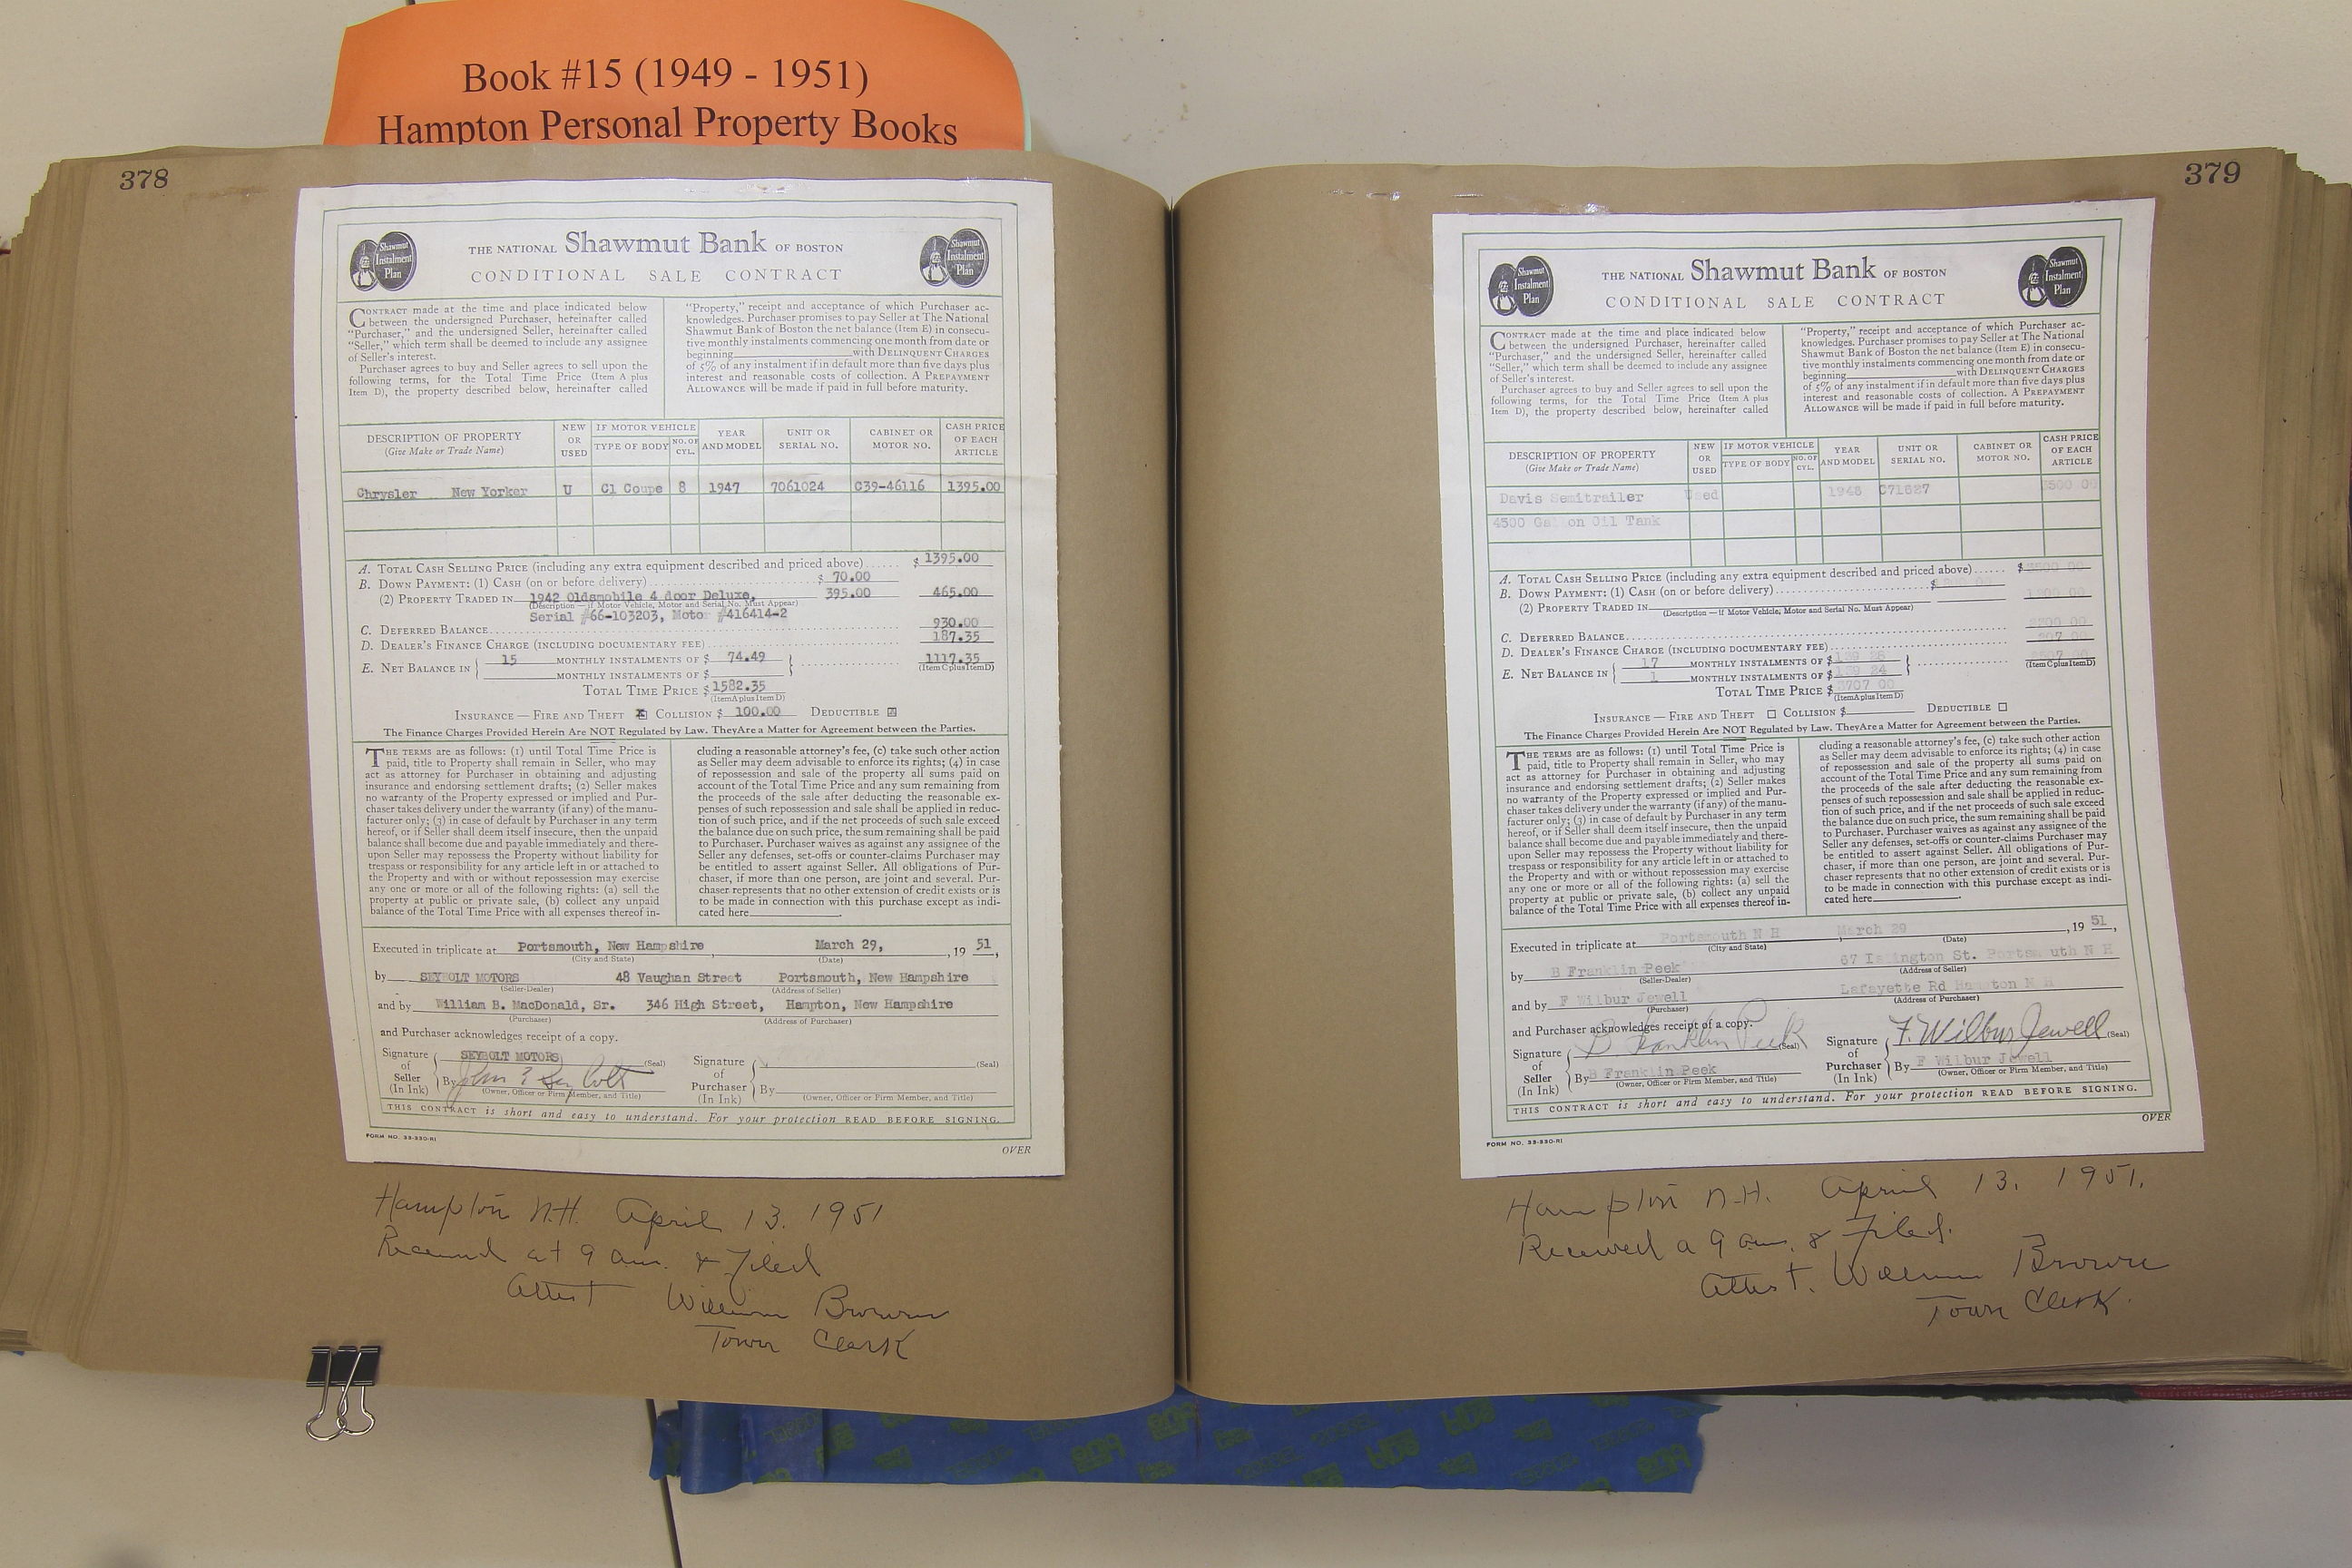 Book #15 (1949 - 1951)
Hampton Personal Property Books
378
Shawmut Instalment Plan
THE NATIONAL Shawmut Bank OF BOSTON
CONDITIONAL SALE CONTRACT
Shawmut Instalment Plan
CONTRACT made at the time and place indicated below
between the undersigned Purchaser, hereinafter called
"Purchaser," and the undersigned Seller, hereinafter called
"Seller," which term shall be deemed to include any assignee
of Seller's interest.
Purchaser agrees to buy and Seller agrees to sell upon the
following terms, for the Total Time Price (Item A plus
Item D), the property described below, hereinafter called
"Property," receipt and acceptance of which Purchaser ac-
knowledges. Purchaser promises to pay Seller at The National
Shawmut Bank of Boston the net balance (Item E) in consecu-
tive monthly instalments commencing one month from date or
beginning with DELINQUENT CHARGES
of 5% of any instalment if in default more than five days plus
interest and reasonable costs of collection. A PREPAYMENT
ALLOWANCE will be made if paid in full before maturity.
DESCRIPTION OF PROPERTY (Give Make or Trade Name) NEW OR USED IF MOTOR VEHICLE TYPE OF BODY NO. OF CYL. YEAR AND MODEL UNIT OR SERIAL NO. CABINET OR MOTOR NO. CASH PRICE OF EACH ARTICLE
Chrysler New Yorker U Cl Coupe 8 1947 7061024 C39-46116 1395.00
A. TOTAL CASH SELLING PRICE (including any extra equipment described and priced above) $ 1395.00
B. DOWN PAYMENT: (1) CASH (on or before delivery) $ 70.00
(2) PROPERTY TRADED IN 1942 Oldsmobile 4 door Deluxe, 395.00 465.00
(Description — if Motor Vehicle, Motor and Serial No. Must Appear)
Serial #66-103203, Motor #416414-2
C. DEFERRED BALANCE 930.00
D. DEALER'S FINANCE CHARGE (INCLUDING DOCUMENTARY FEE) 187.35
E. NET BALANCE IN 15 MONTHLY INSTALMENTS OF $ 74.49 1117.35
MONTHLY INSTALMENTS OF $ (Item C plus Item D)
TOTAL TIME PRICE $ 1582.35
(Item A plus Item D)
INSURANCE — FIRE AND THEFT x COLLISION $ 100.00 DEDUCTIBLE x
The Finance Charges Provided Herein Are NOT Regulated by Law. They Are a Matter for Agreement between the Parties.
THE TERMS are as follows: (1) until Total Time Price is
paid, title to Property shall remain in Seller, who may
act as attorney for Purchaser in obtaining and adjusting
insurance and endorsing settlement drafts; (2) Seller makes
no warranty of the Property expressed or implied and Pur-
chaser takes delivery under the warranty (if any) of the manu-
facturer only; (3) in case of default by Purchaser in any term
hereof, or if Seller shall deem itself insecure, then the unpaid
balance shall become due and payable immediately and there-
upon Seller may repossess the Property without liability for
trespass or responsibility for any article left in or attached to
the Property and with or without repossession may exercise
any one or more or all of the following rights: (a) sell the
property at public or private sale, (b) collect any unpaid
balance of the Total Time Price with all expenses thereof in-
cluding a reasonable attorney's fee, (c) take such other action
as Seller may deem advisable to enforce its rights; (4) in case
of repossession and sale of the property all sums paid on
account of the Total Time Price and any sum remaining from
the proceeds of the sale after deducting the reasonable ex-
penses of such repossession and sale shall be applied in reduc-
tion of such price, and if the net proceeds of such sale exceed
the balance due on such price, the sum remaining shall be paid
to Purchaser. Purchaser waives as against any assignee of the
Seller any defenses, set-offs or counter-claims Purchaser may
be entitled to assert against Seller. All obligations of Pur-
chaser, if more than one person, are joint and several. Pur-
chaser represents that no other extension of credit exists or is
to be made in connection with this purchase except as indi-
cated here
Executed in triplicate at Portsmouth, New Hampshire, March 29, , 19 51,
(City and State) (Date)
by SEYBOLT MOTORS 48 Vaughan Street Portsmouth, New Hampshire
(Seller-Dealer) (Address of Seller)
and by William B. MacDonald, Sr. 346 High Street, Hampton, New Hampshire
(Purchaser) (Address of Purchaser)
and Purchaser acknowledges receipt of a copy.
Signature of Seller (In Ink) SEYBOLT MOTORS (Seal)
By John E Seybolt
(Owner, Officer or Firm Member, and Title)
Signature of Purchaser (In Ink) (Seal)
By
(Owner, Officer or Firm Member, and Title)
THIS CONTRACT is short and easy to understand. For your protection READ BEFORE SIGNING.
FORM NO. 33-330-RI
OVER
Hampton N.H. April 13. 1951
Received at 9 am. & Filed
Attest William Brown
Town Clerk
379
Shawmut Instalment Plan
THE NATIONAL Shawmut Bank OF BOSTON
CONDITIONAL SALE CONTRACT
Shawmut Instalment Plan
CONTRACT made at the time and place indicated below
between the undersigned Purchaser, hereinafter called
"Purchaser," and the undersigned Seller, hereinafter called
"Seller," which term shall be deemed to include any assignee
of Seller's interest.
Purchaser agrees to buy and Seller agrees to sell upon the
following terms, for the Total Time Price (Item A plus
Item D), the property described below, hereinafter called
"Property," receipt and acceptance of which Purchaser ac-
knowledges. Purchaser promises to pay Seller at The National
Shawmut Bank of Boston the net balance (Item E) in consecu-
tive monthly instalments commencing one month from date or
beginning with DELINQUENT CHARGES
of 5% of any instalment if in default more than five days plus
interest and reasonable costs of collection. A PREPAYMENT
ALLOWANCE will be made if paid in full before maturity.
DESCRIPTION OF PROPERTY (Give Make or Trade Name) NEW OR USED IF MOTOR VEHICLE TYPE OF BODY NO. OF CYL. YEAR AND MODEL UNIT OR SERIAL NO. CABINET OR MOTOR NO. CASH PRICE OF EACH ARTICLE
Davis Semitrailer Used C71627 3500 00
4500 Gallon Oil Tank
A. TOTAL CASH SELLING PRICE (including any extra equipment described and priced above) $ 3500 00
B. DOWN PAYMENT: (1) CASH (on or before delivery) $
(2) PROPERTY TRADED IN
(Description — if Motor Vehicle, Motor and Serial No. Must Appear)
C. DEFERRED BALANCE
D. DEALER'S FINANCE CHARGE (INCLUDING DOCUMENTARY FEE) 207 00
E. NET BALANCE IN 17 MONTHLY INSTALMENTS OF $
1 MONTHLY INSTALMENTS OF $ 139 24 (Item C plus Item D)
TOTAL TIME PRICE $ 3707 00
(Item A plus Item D)
INSURANCE — FIRE AND THEFT COLLISION $ DEDUCTIBLE
The Finance Charges Provided Herein Are NOT Regulated by Law. They Are a Matter for Agreement between the Parties.
THE TERMS are as follows: (1) until Total Time Price is
paid, title to Property shall remain in Seller, who may
act as attorney for Purchaser in obtaining and adjusting
insurance and endorsing settlement drafts; (2) Seller makes
no warranty of the Property expressed or implied and Pur-
chaser takes delivery under the warranty (if any) of the manu-
facturer only; (3) in case of default by Purchaser in any term
hereof, or if Seller shall deem itself insecure, then the unpaid
balance shall become due and payable immediately and there-
upon Seller may repossess the Property without liability for
trespass or responsibility for any article left in or attached to
the Property and with or without repossession may exercise
any one or more or all of the following rights: (a) sell the
property at public or private sale, (b) collect any unpaid
balance of the Total Time Price with all expenses thereof in-
cluding a reasonable attorney's fee, (c) take such other action
as Seller may deem advisable to enforce its rights; (4) in case
of repossession and sale of the property all sums paid on
account of the Total Time Price and any sum remaining from
the proceeds of the sale after deducting the reasonable ex-
penses of such repossession and sale shall be applied in reduc-
tion of such price, and if the net proceeds of such sale exceed
the balance due on such price, the sum remaining shall be paid
to Purchaser. Purchaser waives as against any assignee of the
Seller any defenses, set-offs or counter-claims Purchaser may
be entitled to assert against Seller. All obligations of Pur-
chaser, if more than one person, are joint and several. Pur-
chaser represents that no other extension of credit exists or is
to be made in connection with this purchase except as indi-
cated here
Executed in triplicate at Portsmouth N H March 29 , 19 51,
(City and State) (Date)
by B Franklin Peek 67 Islington St. Portsmouth N H
(Seller-Dealer) (Address of Seller)
and by F Wilbur Jewell Lafayette Rd Hampton N H
(Purchaser) (Address of Purchaser)
and Purchaser acknowledges receipt of a copy.
Signature of Seller (In Ink) B Franklin Peek (Seal)
By B Franklin Peek
(Owner, Officer or Firm Member, and Title)
Signature of Purchaser (In Ink) F. Wilbur Jewell (Seal)
By F Wilbur Jewell
(Owner, Officer or Firm Member, and Title)
THIS CONTRACT is short and easy to understand. For your protection READ BEFORE SIGNING.
FORM NO. 33-330-RI
OVER
Hampton N.H. April 13. 1951.
Received a 9 am. & Filed.
Attest. William Brown
Town Clerk.